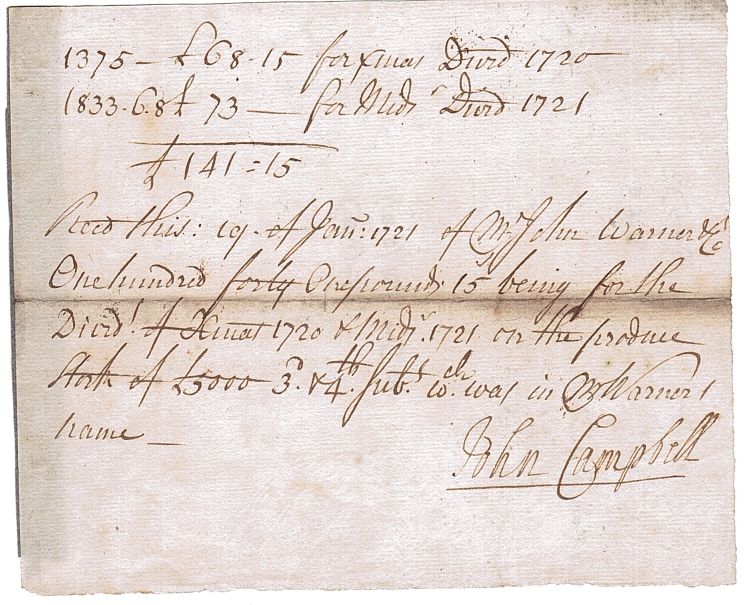 1375 – £68-15 for Xmas Divid 1720
1833.6.8 £ 73 — for Midsr Divid 1721
£ 141=15
Recd this: 19. of Janr: 1721 of Mr John Warner & Co
One hundred forty One pounds 15s being for the
Divids: of Xmas 1720 & Midsr. 1721 on the produce
stock of £5000 3d. & 4th Subs: wch. was in Mr Warners
name —
John Campbell